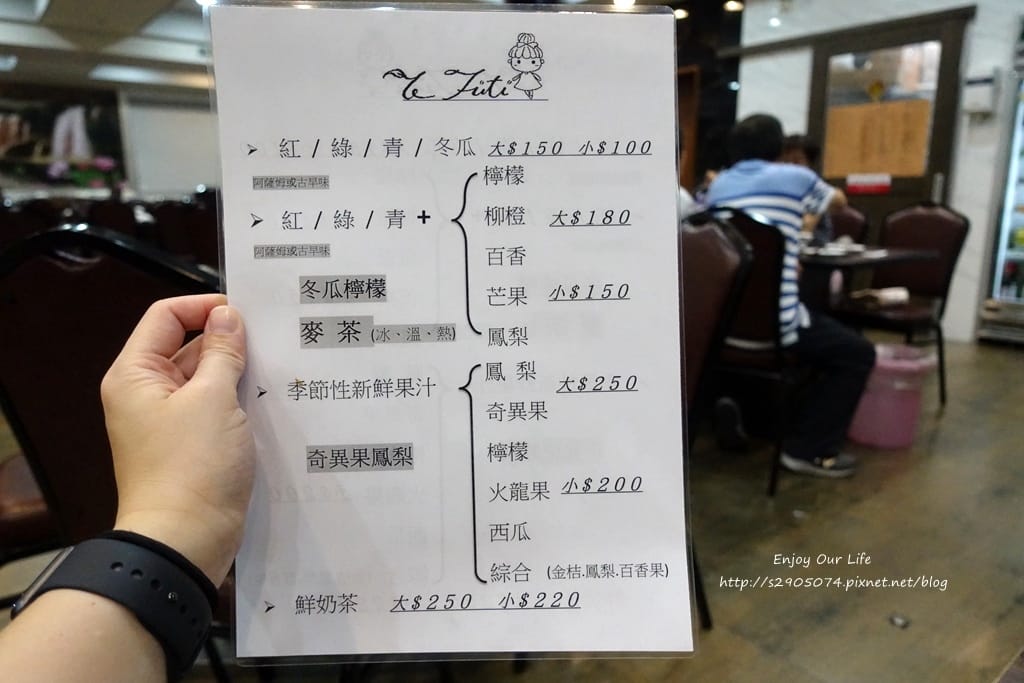 Te Füti
➢ 紅 / 綠 / 青 / 冬瓜 大$150 小$100
阿薩姆或古早味
➢ 紅 / 綠 / 青 +
阿薩姆或古早味
冬瓜檸檬
麥 茶 (冰、溫、熱)
檸檬
柳橙 大$180
百香
芒果 小$150
鳳梨
➢ 季節性新鮮果汁
奇異果鳳梨
鳳 梨 大$250
奇異果
檸檬
火龍果 小$200
西瓜
綜合 (金桔.鳳梨.百香果)
➢ 鮮奶茶 大$250 小$220
Enjoy Our Life
http://s2905074.pixnet.net/blog